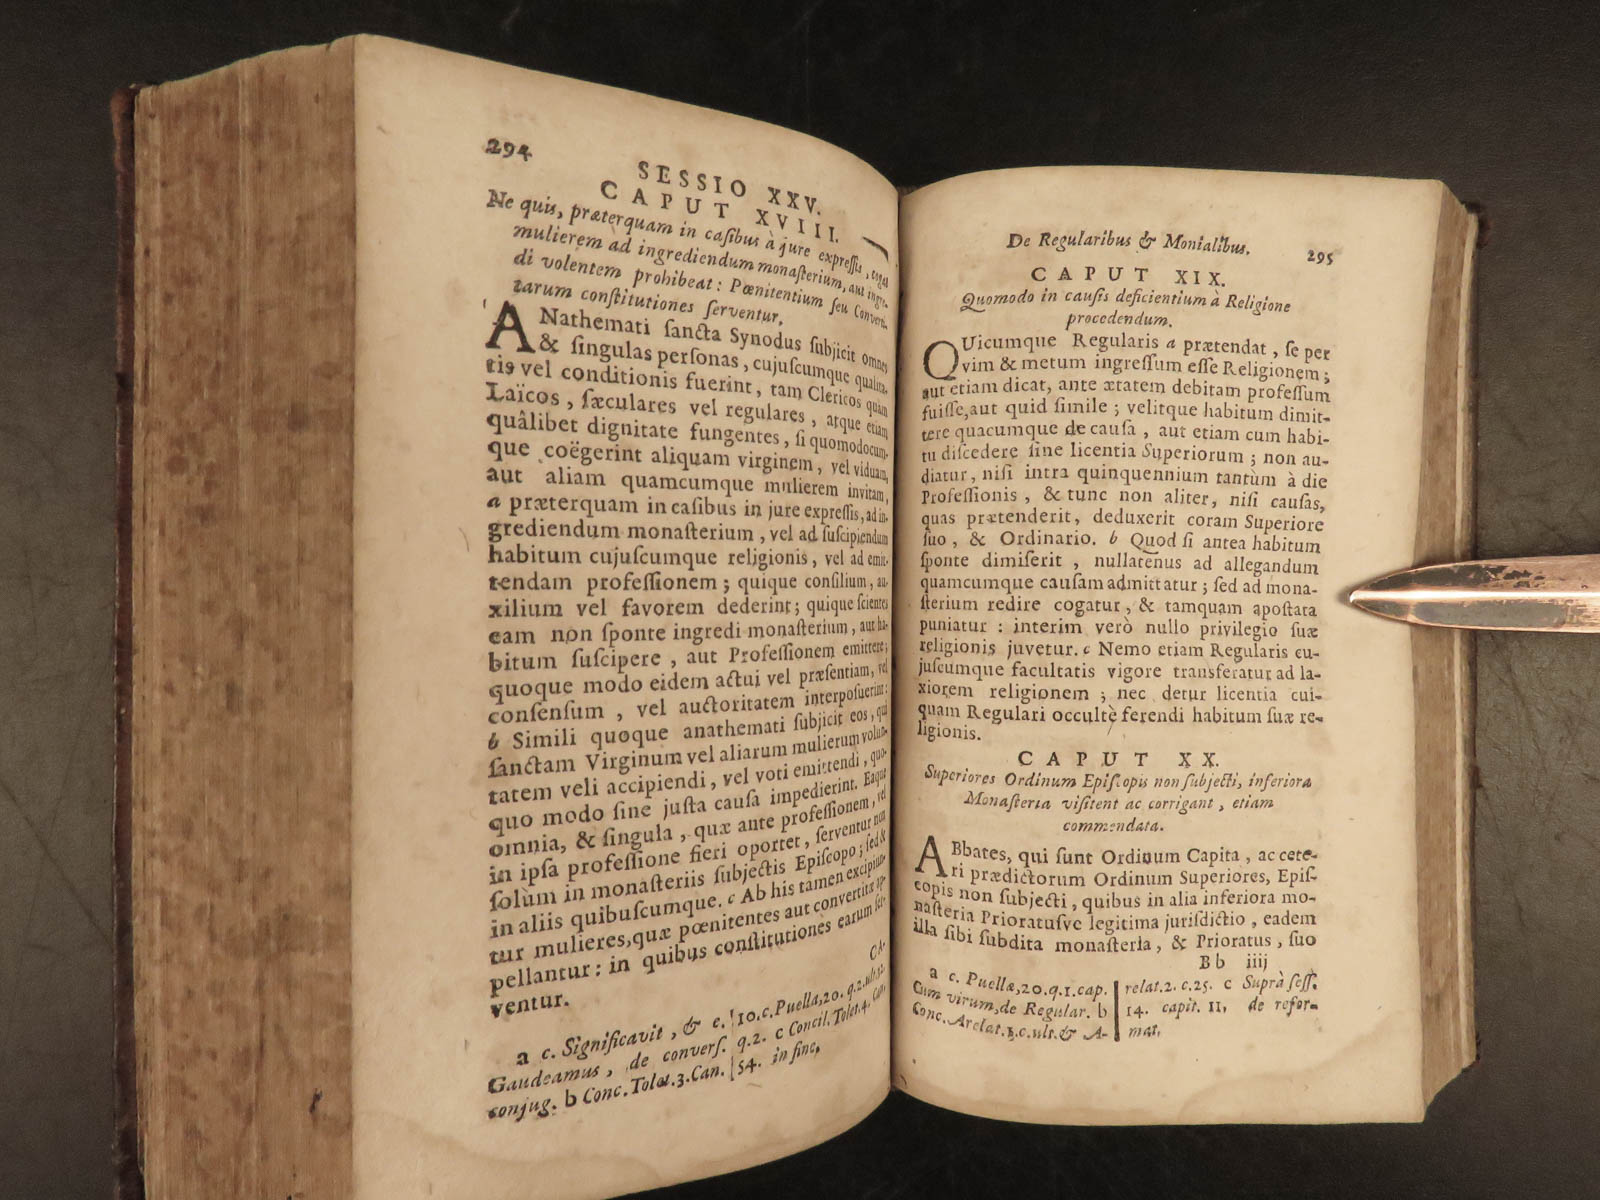 294
SESSIO XXV.
CAPUT XVIII.
Ne quis, præterquam in caſibus à jure expreſſis, cogat
mulierem ad ingrediendum monaſterium, aut ingre-
di volentem prohibeat: Pœnitentium ſeu Converti-
tarum conſtitutiones ſerventur.
ANathemati ſancta Synodus ſubjicit omnes
& ſingulas perſonas, cujuſcumque qualita-
tis vel conditionis fuerint, tam Clericos quàm
Laïcos, ſæculares vel regulares, atque etiam
quâlibet dignitate fungentes, ſi quomodocum-
que coëgerint aliquam virginem, vel viduam,
aut aliam quamcumque mulierem invitam,
a præterquam in caſibus in jure expreſſis, ad in-
grediendum monaſterium, vel ad ſuſcipiendum
habitum cujuſcumque religionis, vel ad emit-
tendam profeſſionem; quique conſilium, au-
xilium vel favorem dederint; quique ſcientes
eam non ſponte ingredi monaſterium, aut ha-
bitum ſuſcipere, aut Profeſſionem emittere;
quoque modo eidem actui vel præſentiam, vel
conſenſum, vel auctoritatem interpoſuerint:
b Simili quoque anathemati ſubjicit eos, qui
ſanctam Virginum vel aliarum mulierum volun-
tatem veli accipiendi, vel voti emittendi, quo-
quo modo ſine juſta cauſa impedierint. Eaque
omnia, & ſingula, quæ ante profeſſionem, vel
in ipſa profeſſione fieri oportet, ſerventur non
ſolùm in monaſteriis ſubjectis Epiſcopo; ſed &
in aliis quibuſcumque. c Ab his tamen excipiun-
tur mulieres, quæ pœnitentes aut convertitæ ap-
pellantur: in quibus conſtitutiones earum ſer-
ventur.
CA-
a c. Significavit, & c.
Gaudeamus, de converſ.
conjug. b Conc. Tolet. 3. Can.
10. c. Puella, 20. q. 2. ult. 12.
q. 2. c Concil. Tolet. 4. Can.
54. in fine,
De Regularibus & Monialibus. 295
CAPUT XIX.
Quomodo in cauſis deficientium à Religione
procedendum.
QUicumque Regularis a prætendat, ſe per
vim & metum ingreſſum eſſe Religionem;
aut etiam dicat, ante ætatem debitam profeſſum
fuiſſe, aut quid ſimile; velitque habitum dimit-
tere quacumque de cauſa, aut etiam cum habi-
tu diſcedere ſine licentia Superiorum; non au-
diatur, niſi intra quinquennium tantùm à die
Profeſſionis, & tunc non aliter, niſi cauſas,
quas prætenderit, deduxerit coram Superiore
ſuo, & Ordinario. b Quod ſi antea habitum
ſponte dimiſerit, nullatenus ad allegandum
quamcumque cauſam admittatur; ſed ad mona-
ſterium redire cogatur, & tamquam apoſtata
puniatur: interim verò nullo privilegio ſuæ
religionis juvetur. c Nemo etiam Regularis cu-
juſcumque facultatis vigore transferatur ad la-
xiorem religionem; nec detur licentia cui-
quam Regulari occultè ferendi habitum ſuæ re-
ligionis.
CAPUT XX.
Superiores Ordinum Epiſcopis non ſubjecti, inferiora
Monaſteria viſitent ac corrigant, etiam
commendata.
ABbates, qui ſunt Ordinum Capita, ac cete-
ri prædictorum Ordinum Superiores, Epiſ-
copis non ſubjecti, quibus in alia inferiora mo-
naſteria Prioratuſve legitima juriſdictio, eadem
illa ſibi ſubdita monaſteria, & Prioratus, ſuo
Bb iiij
a c. Puellæ, 20. q. 1. cap.
Cum virum, de Regular. b
Conc. Arelat. 3. c. ult. & A-
relat. 2. c. 25. c Suprà ſeſſ.
14. capit. 11. de refor-
mat.